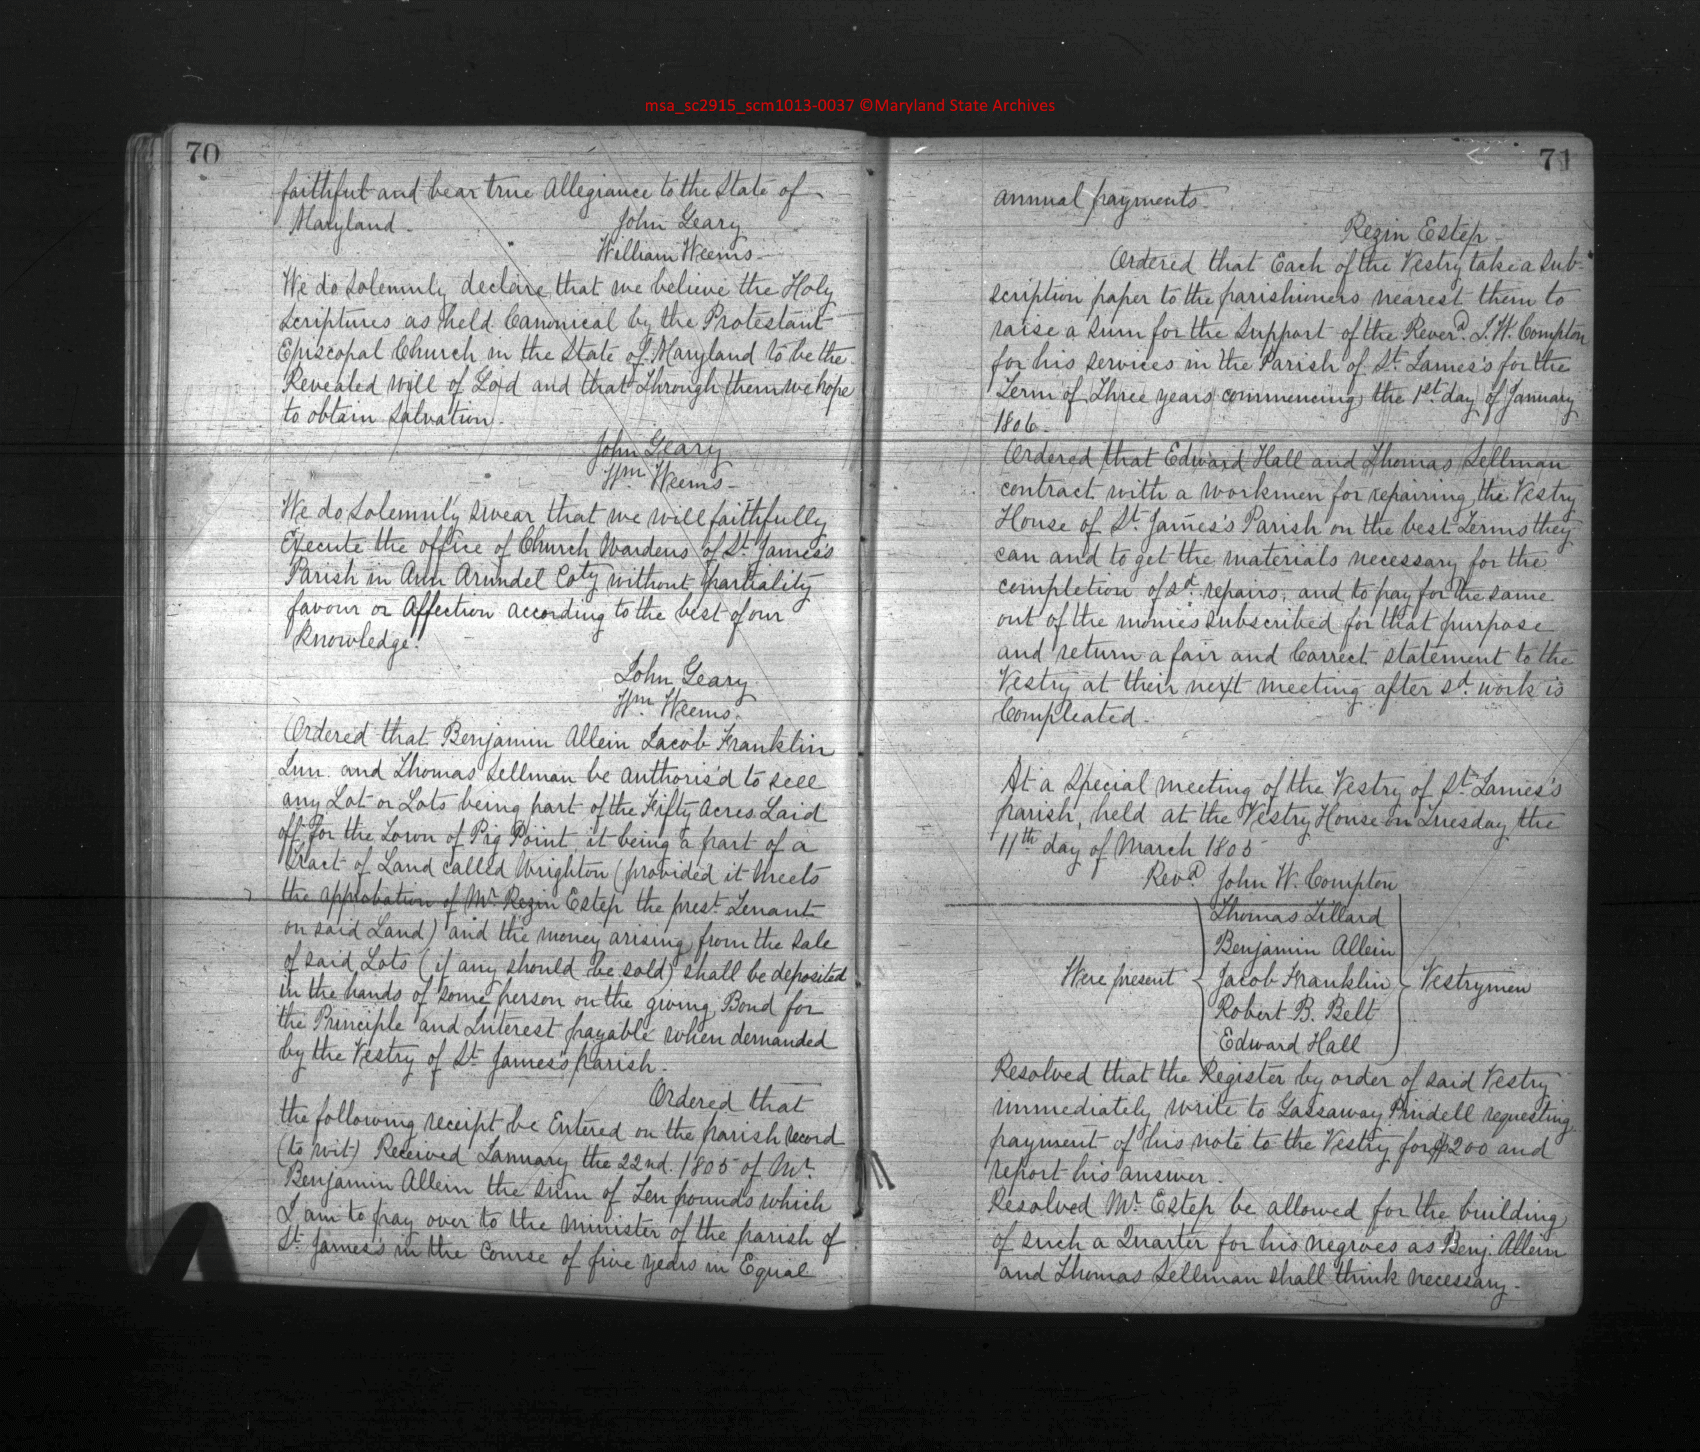 msa_sc2915_scm1013-0037 ©Maryland State Archives
70
faithful and bear true Allegiance to the State of
Maryland.
John Geary
William Weems
We do Solemnly declare that we believe the Holy
Scriptures as held Canonical by the Protestant
Episcopal Church in the State of Maryland to be the
Revealed will of God and that through them we hope
to obtain Salvation.
John Geary
Wm Weems
We do Solemnly Swear that we will faithfully
Execute the office of Church Wardens of St. James's
Parish in Ann Arundel Coty without partiality
favour or Affection according to the best of our
knowledge.
John Geary
Wm Weems.
Ordered that Benjamin Allein Jacob Franklin
Jun. and Thomas Sellman be authoris'd to sell
any Lot or Lots being part of the Fifty Acres Laid
off for the Town of Pig Point, it being a part of a
tract of Land called Wrighton (provided it meets
the approbation of Mr. Rezin Estep the prest. Tenant
on said Land) and the money arising from the sale
of said Lots (if any should be sold) shall be deposited
in the hands of some person on the giving Bond for
the Principle and Interest payable when demanded
by the Vestry of St James's parish.
Ordered that
the following receipt be Entered on the parish record
(to wit) Received January the 22nd. 1805 of Mr.
Benjamin Allein the sum of Ten pounds which
I am to pay over to the minister of the parish of
St. James's in the course of five years in Equal
71
annual payments.
Rezin Estep
Ordered that Each of the Vestry take a Sub-
scription paper to the parishioners nearest them to
raise a sum for the Support of the Reverd. J. W. Compton
for his services in the Parish of St. James's for the
Term of Three years commencing the 1st. day of January
1806.
Ordered that Edward Hall and Thomas Sellman
contract with a workmen for repairing the Vestry
House of St. James's Parish on the best Terms they
can and to get the materials necessary for the
completion of sd. repairs, and to pay for the same
out of the monies Subscribed for that purpose
and return a fair and Correct statement to the
Vestry at their next meeting after sd. work is
Compleated.
At a Special meeting of the Vestry of St. James's
parish, held at the Vestry House on Tuesday the
11th day of March 1805
Revd. John W. Compton
Thomas Tillard
Benjamin Allein
Were present Jacob Franklin Vestrymen
Robert B. Belt
Edward Hall
Resolved that the Register by order of said Vestry
immediately write to Gassaway Pindell requesting
payment of his note to the Vestry for $200 and
report his answer.
Resolved Mr. Estep be allowed for the building
of such a Quarter for his negroes as Benj. Allein
and Thomas Sellman shall think necessary.